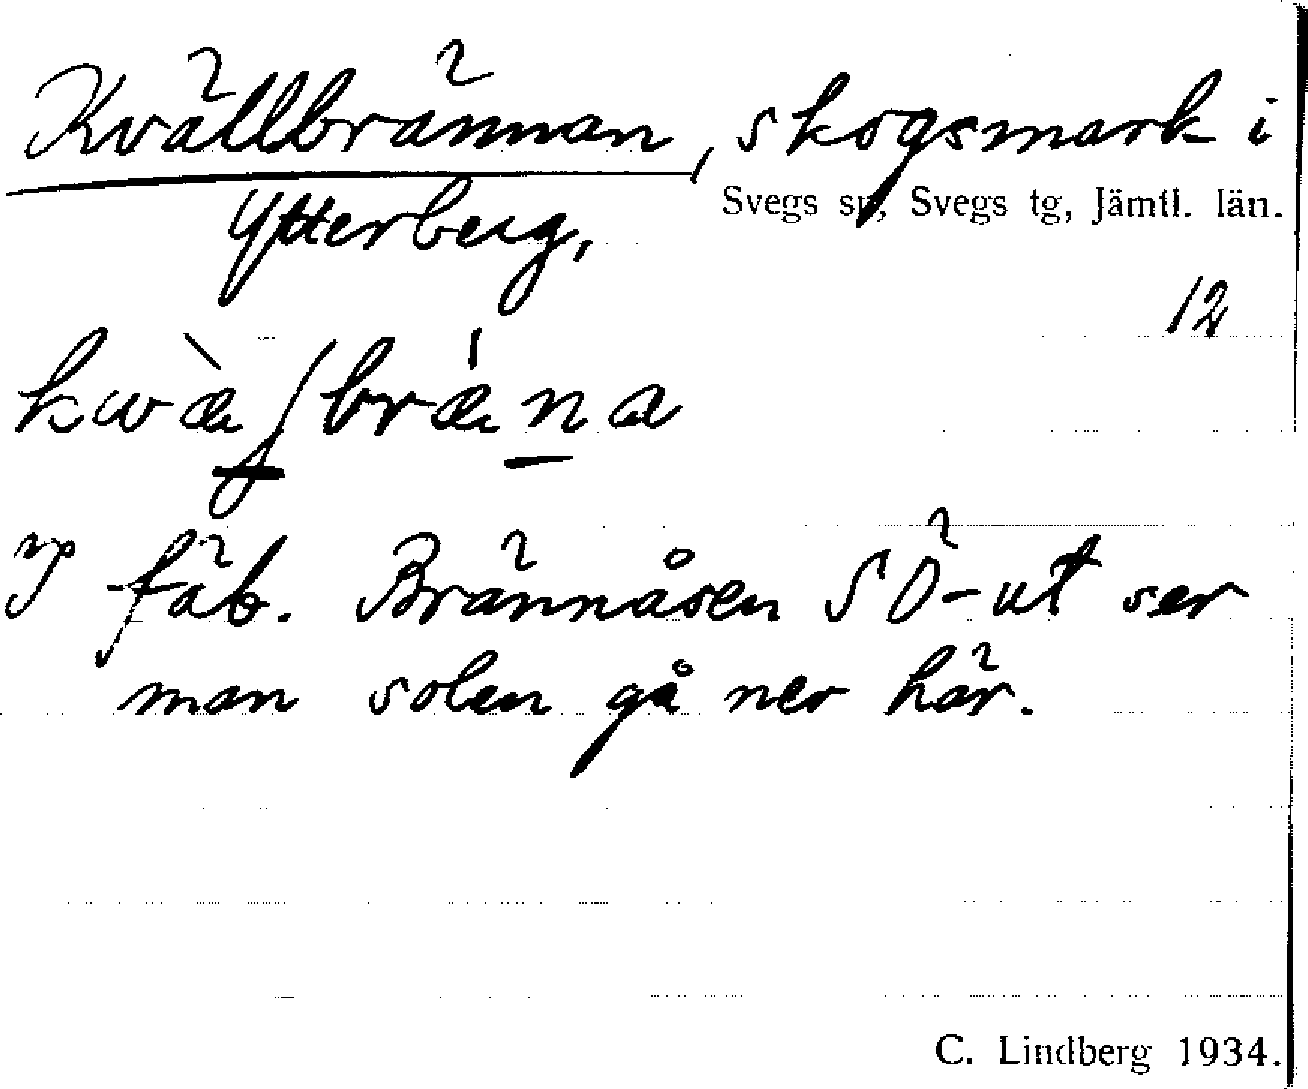 Kvällbrännan, skogsmark i
Ytterberg,
Svegs sn, Svegs tg, Jämtl. län.
12
man solen gå ner här.
fäb. Brännåsen SÖ-ut ser
C. Lindberg 1934.